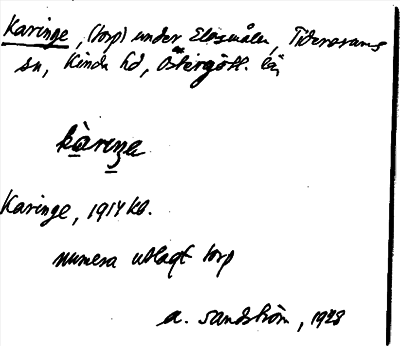 Karinge, (torp) under Elösmålen, Tidersrums
sn, Kinda hd, Östergötl. län
kàrıŋa
Karinge, 1914 kb.
numera utlagt torp
A. Sandström, 1928